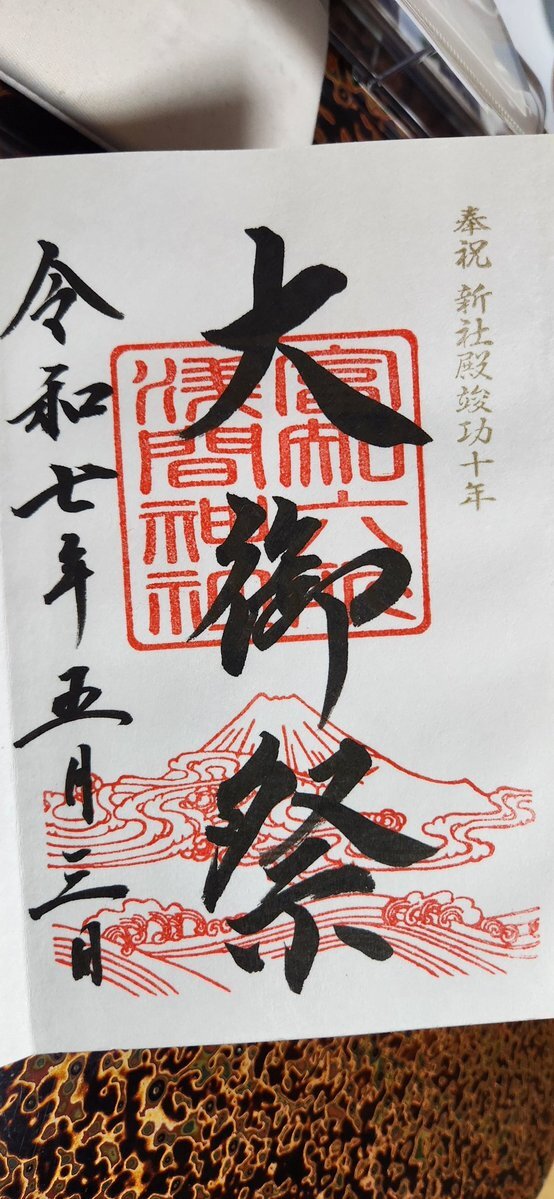 奉祝 新社殿竣功十年
大御祭
富知六所
淺間神社
令和七年五月三日